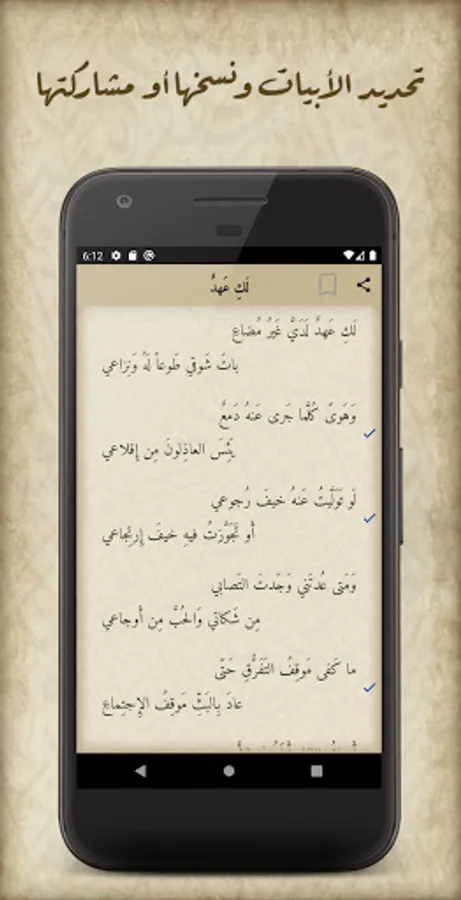 تحديد الأبيات ونسخها أو مشاركتها
6:12
لَكِ عَهدٌ
لَكِ عَهدٌ لَدَيَّ غَيرُ مُضاعِ
باتَ شَوقي طَوعاً لَهُ وَنِزاعي
وَهَوىً كُلَّما جَرى عَنهُ دَمعٌ
يَئِسَ العاذِلونَ مِن إِقلاعي
لَو تَوَلَّيتُ عَنهُ خيفَ رُجوعي
أَو تَجَوَّزتُ فيهِ خيفَ إِرتِجاعي
وَمَتى عُدتَني وَجَدتَ التَصابي
مِن شَكاتي وَالحُبَّ مِن أَوجاعي
ما كَفى مَوقِفُ التَفَرُّقِ حَتّى
عادَ بِالبَثِّ مَوقِفُ الإِجتِماعِ